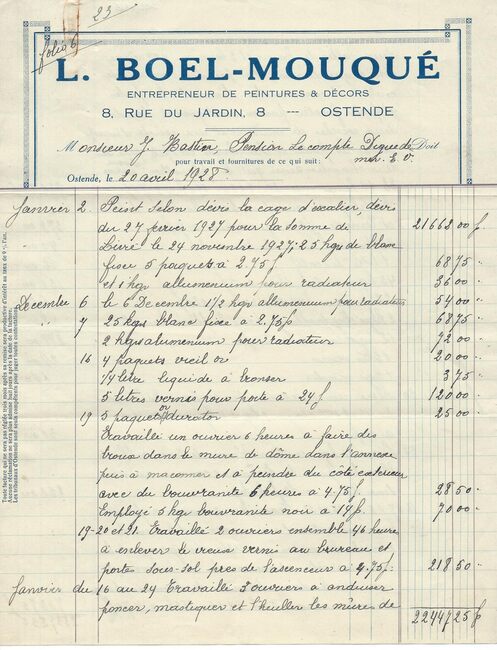 23
folio 6
L. BOEL-MOUQUÉ
ENTREPRENEUR DE PEINTURES & DÉCORS
8, RUE DU JARDIN, 8 --- OSTENDE
Monsieur J. Pension Le compte Digue de Doit
mer. E. V.
pour travail et fournitures de ce qui suit:
Ostende, le 20 avril 1928.
Janvier 2. Peint selon devis la cage d'escalier, devis
du 27 fevrier 1927 pour la somme de 21662.00 f
Livré le 24 novembre 1927, 25 kgs de blanc
fixee 5 paquets à 2.75 f 68.75 "
et 1 kgr alluemenium pour radiateur 36.00 "
Decembre 6 le 6 Decembre 1 1/2 kgr alluemenium pour radiateur 54.00 "
" 7 25 kgs blanc fixee à 2.75 f 68.75 "
2 kgrs alluemenium pour radiateur 72.00 "
16 4 paquets vreil or 20.00 "
1/4 litre liquide à bronser 3.75 "
5 litres vernis pour porte à 24 f 120.00 "
19 5 paquets or ducrotor 25.00 "
Travaillé un ouvrier 6 heures à faire des
trous dans le mure de dôme dans l'annexe
puis à maconner et à peindre du côté exterieur
avec du bouvranite 6 heures à 4.75 f. 28.50 "
Employé 5 kgr bouvranite noir à 14 f. 70.00 "
19-20 et 21. Travaillé 2 ouvriers ensemble 46 heures
à enlever le vieux vernis au brureau et
portes sous-sol près de l'ascenceur à 4.75 f. 218.50 "
Janvier du 16 au 24 Travaillé 3 ouvriers à anduiser
poncer, mastiquer et l'huiller les mûres de
22447.25 f
Toute facture qui ne sera pas réglée trois mois après sa remise sera productive d'intérêt au taux de 9 % l'an.
Aucune réclamation ne sera plus admise huit jours après la date de la facture.
Les tribunaux d'Ostende sont seuls compétents pour juger toutes contestations.